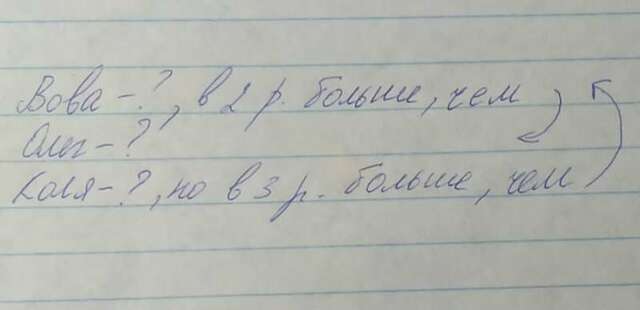 Вова - ?, в 2 р. больше, чем
Олег - ?
Коля - ?, но в 3 р. больше, чем